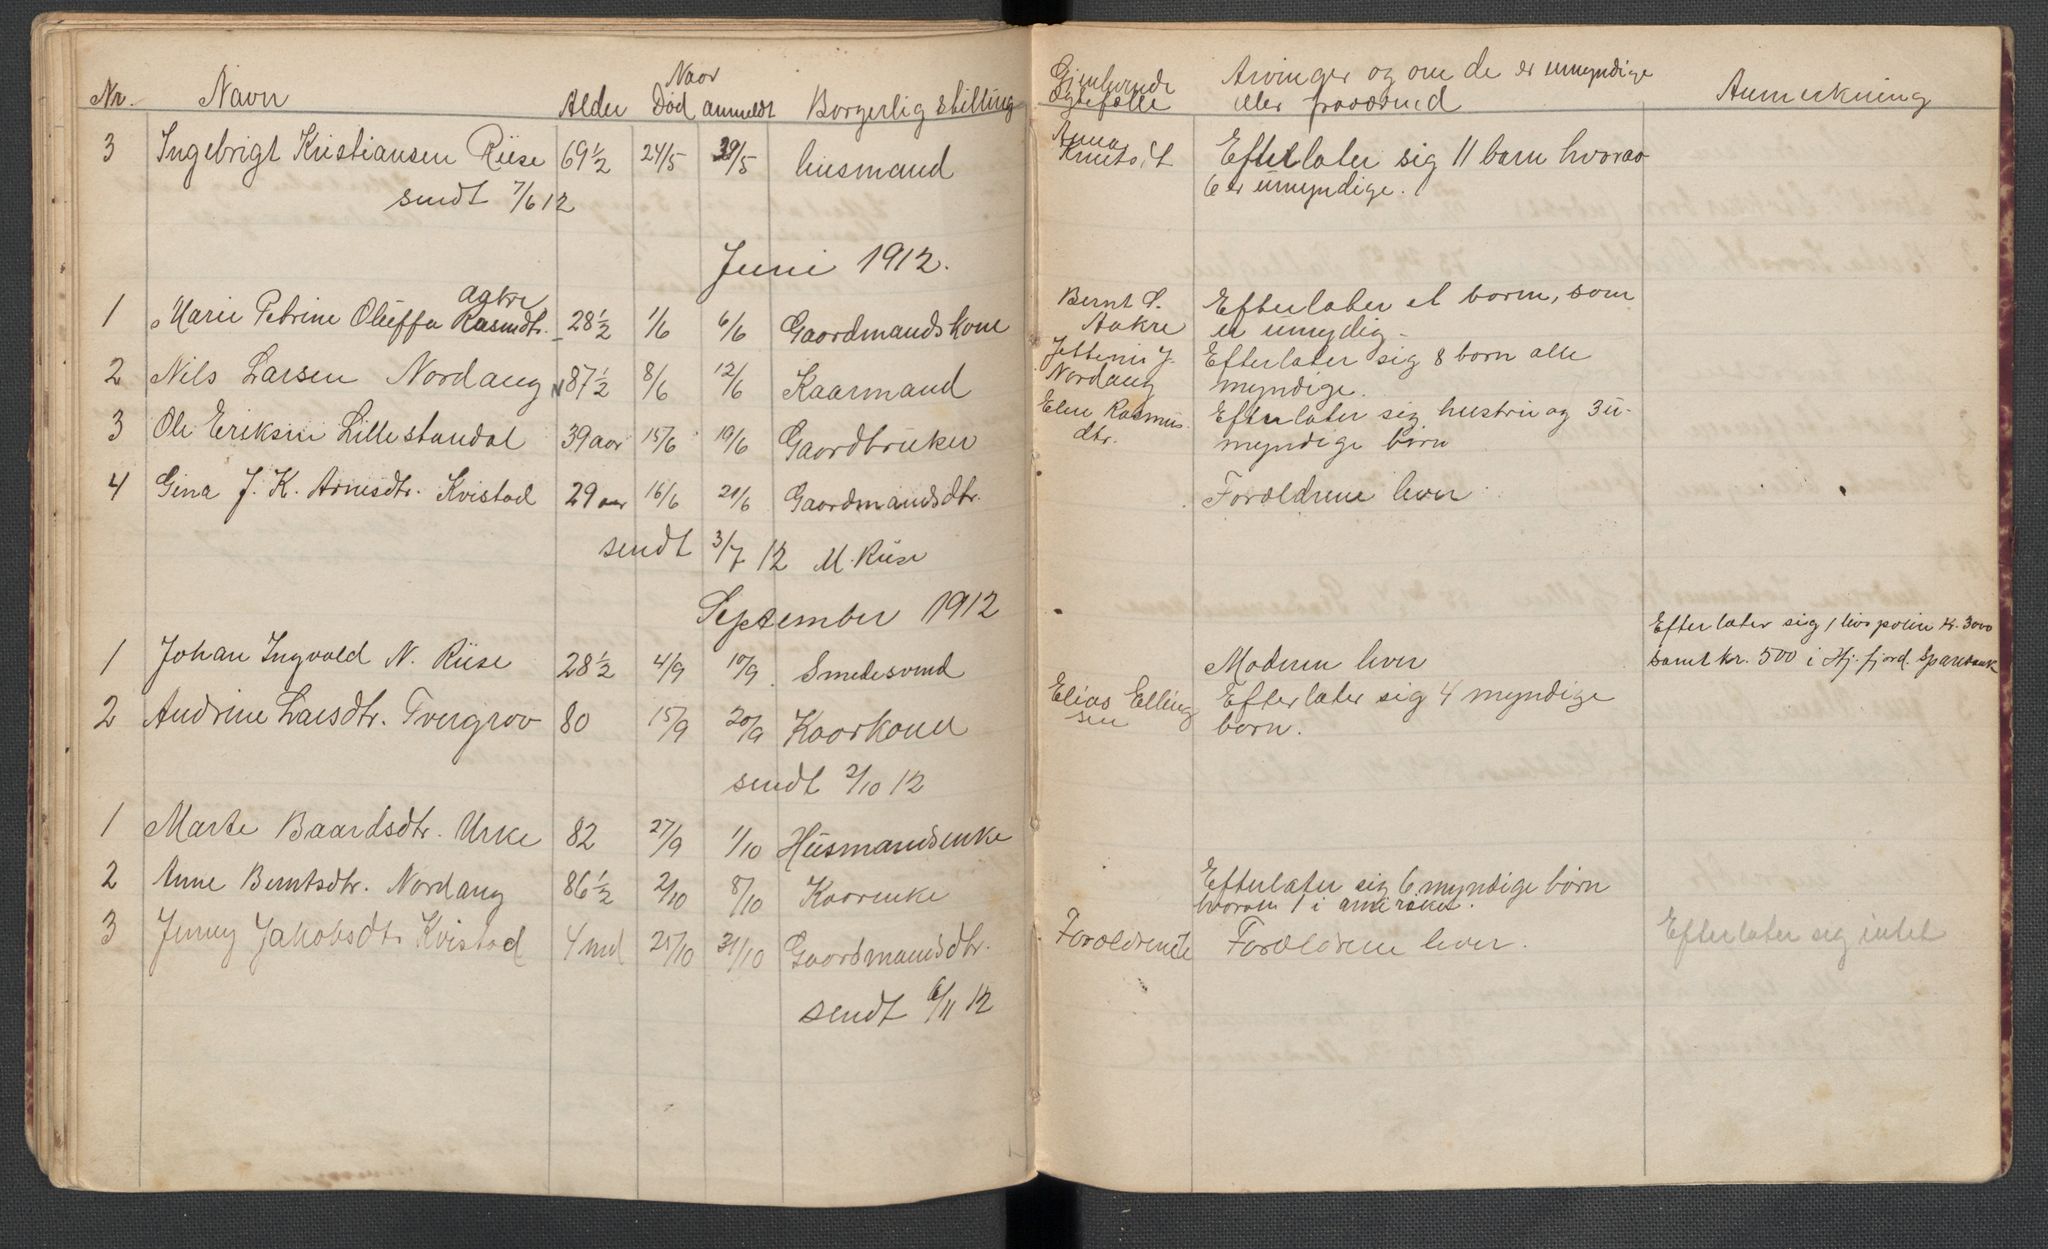 Nr. Navn Alder Naar Død anmeldt Borgerlig stilling
3 Ingebrigt Kristiansen Riise 69 1/2 24/5 29/5 husmand
sendt 7/6 12
Juni 1912.
1 Marie Petrine Oluffa Rasmdtr. Aakre 28 1/2 1/6 6/6 Gaardmandskone
2 Nils Larsen Nordang 87 1/2 8/6 12/6 Kaarmand
3 Ole Eriksen Lillestandal 39 aar 15/6 19/6 Gaardbruker
4 Gina J. K. Arnesdtr. Kvistad 29 aar 16/6 21/6 Gaardmandsdtr.
sendt 3/7 12 M. Riise
September 1912
1 Johan Ingvald N. Riise 28 1/2 4/9 10/9 Smedesvend
2 Andrine Larsdtr. Tvergrov 80 15/9 20/9 Kaarkone
sendt 2/10 12
1 Marte Baardsdtr. Urke 82 27/9 1/10 Husmandsenke
2 Anne Berntsdtr. Nordang 86 1/2 2/10 8/10 Kaarenke
3 Jenny Jakobsdtr. Kvistad 4 md 25/10 31/10 Gaardmandsdtr.
sendt 6/11 12
Gjenlevende Arvinger og om de er umyndige
egtefælle eller fraværend Anmerkning
Anna
Knutsd. Efterlater sig 11 barn hvorav
6 er umyndige.
Bernt S. Efterlater et barn, som
Aakre er umydig
Jettine J. Efterlater sig 8 barn alle
Nordang myndige.
Eline Rasmus Efterlater sig hustru og 3 u-
dtr. myndige barn
Forældrene lever
Efterlater sig 1 livspolise kr. 3000
Moderen lever samt kr. 500 i Hj. fjord. Sparebank
Elias Elling Efterlater sig 4 myndige
sen barn.
Efterlater sig 6 myndige børn
hvorav 1 i amerika.
Forældrene Forældrene lever. Efterlater sig intet